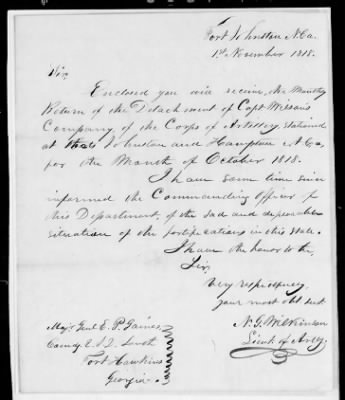 Fort Johnston N.Ca.
1st November 1818.
Sir
Enclosed you will receive, the Monthly
Return of the Detachment of Capt Wilsons
Company, of the Corps of Artillery, stationed
at Johnston and Hampton N. Ca,
for the Month of October 1818.
I have some time since
informed the Commanding Officer of
this Department, of the sad and deplorable
situation of the fortifications in this state.
I have the honor to be,
Sir,
very respectfully
your most obt servt
N. G. Wilkinson
Lieut of Arty.
Majr Genl E. P. Gaines
Comdg E. & D. South
Fort Hawkins
Georgia